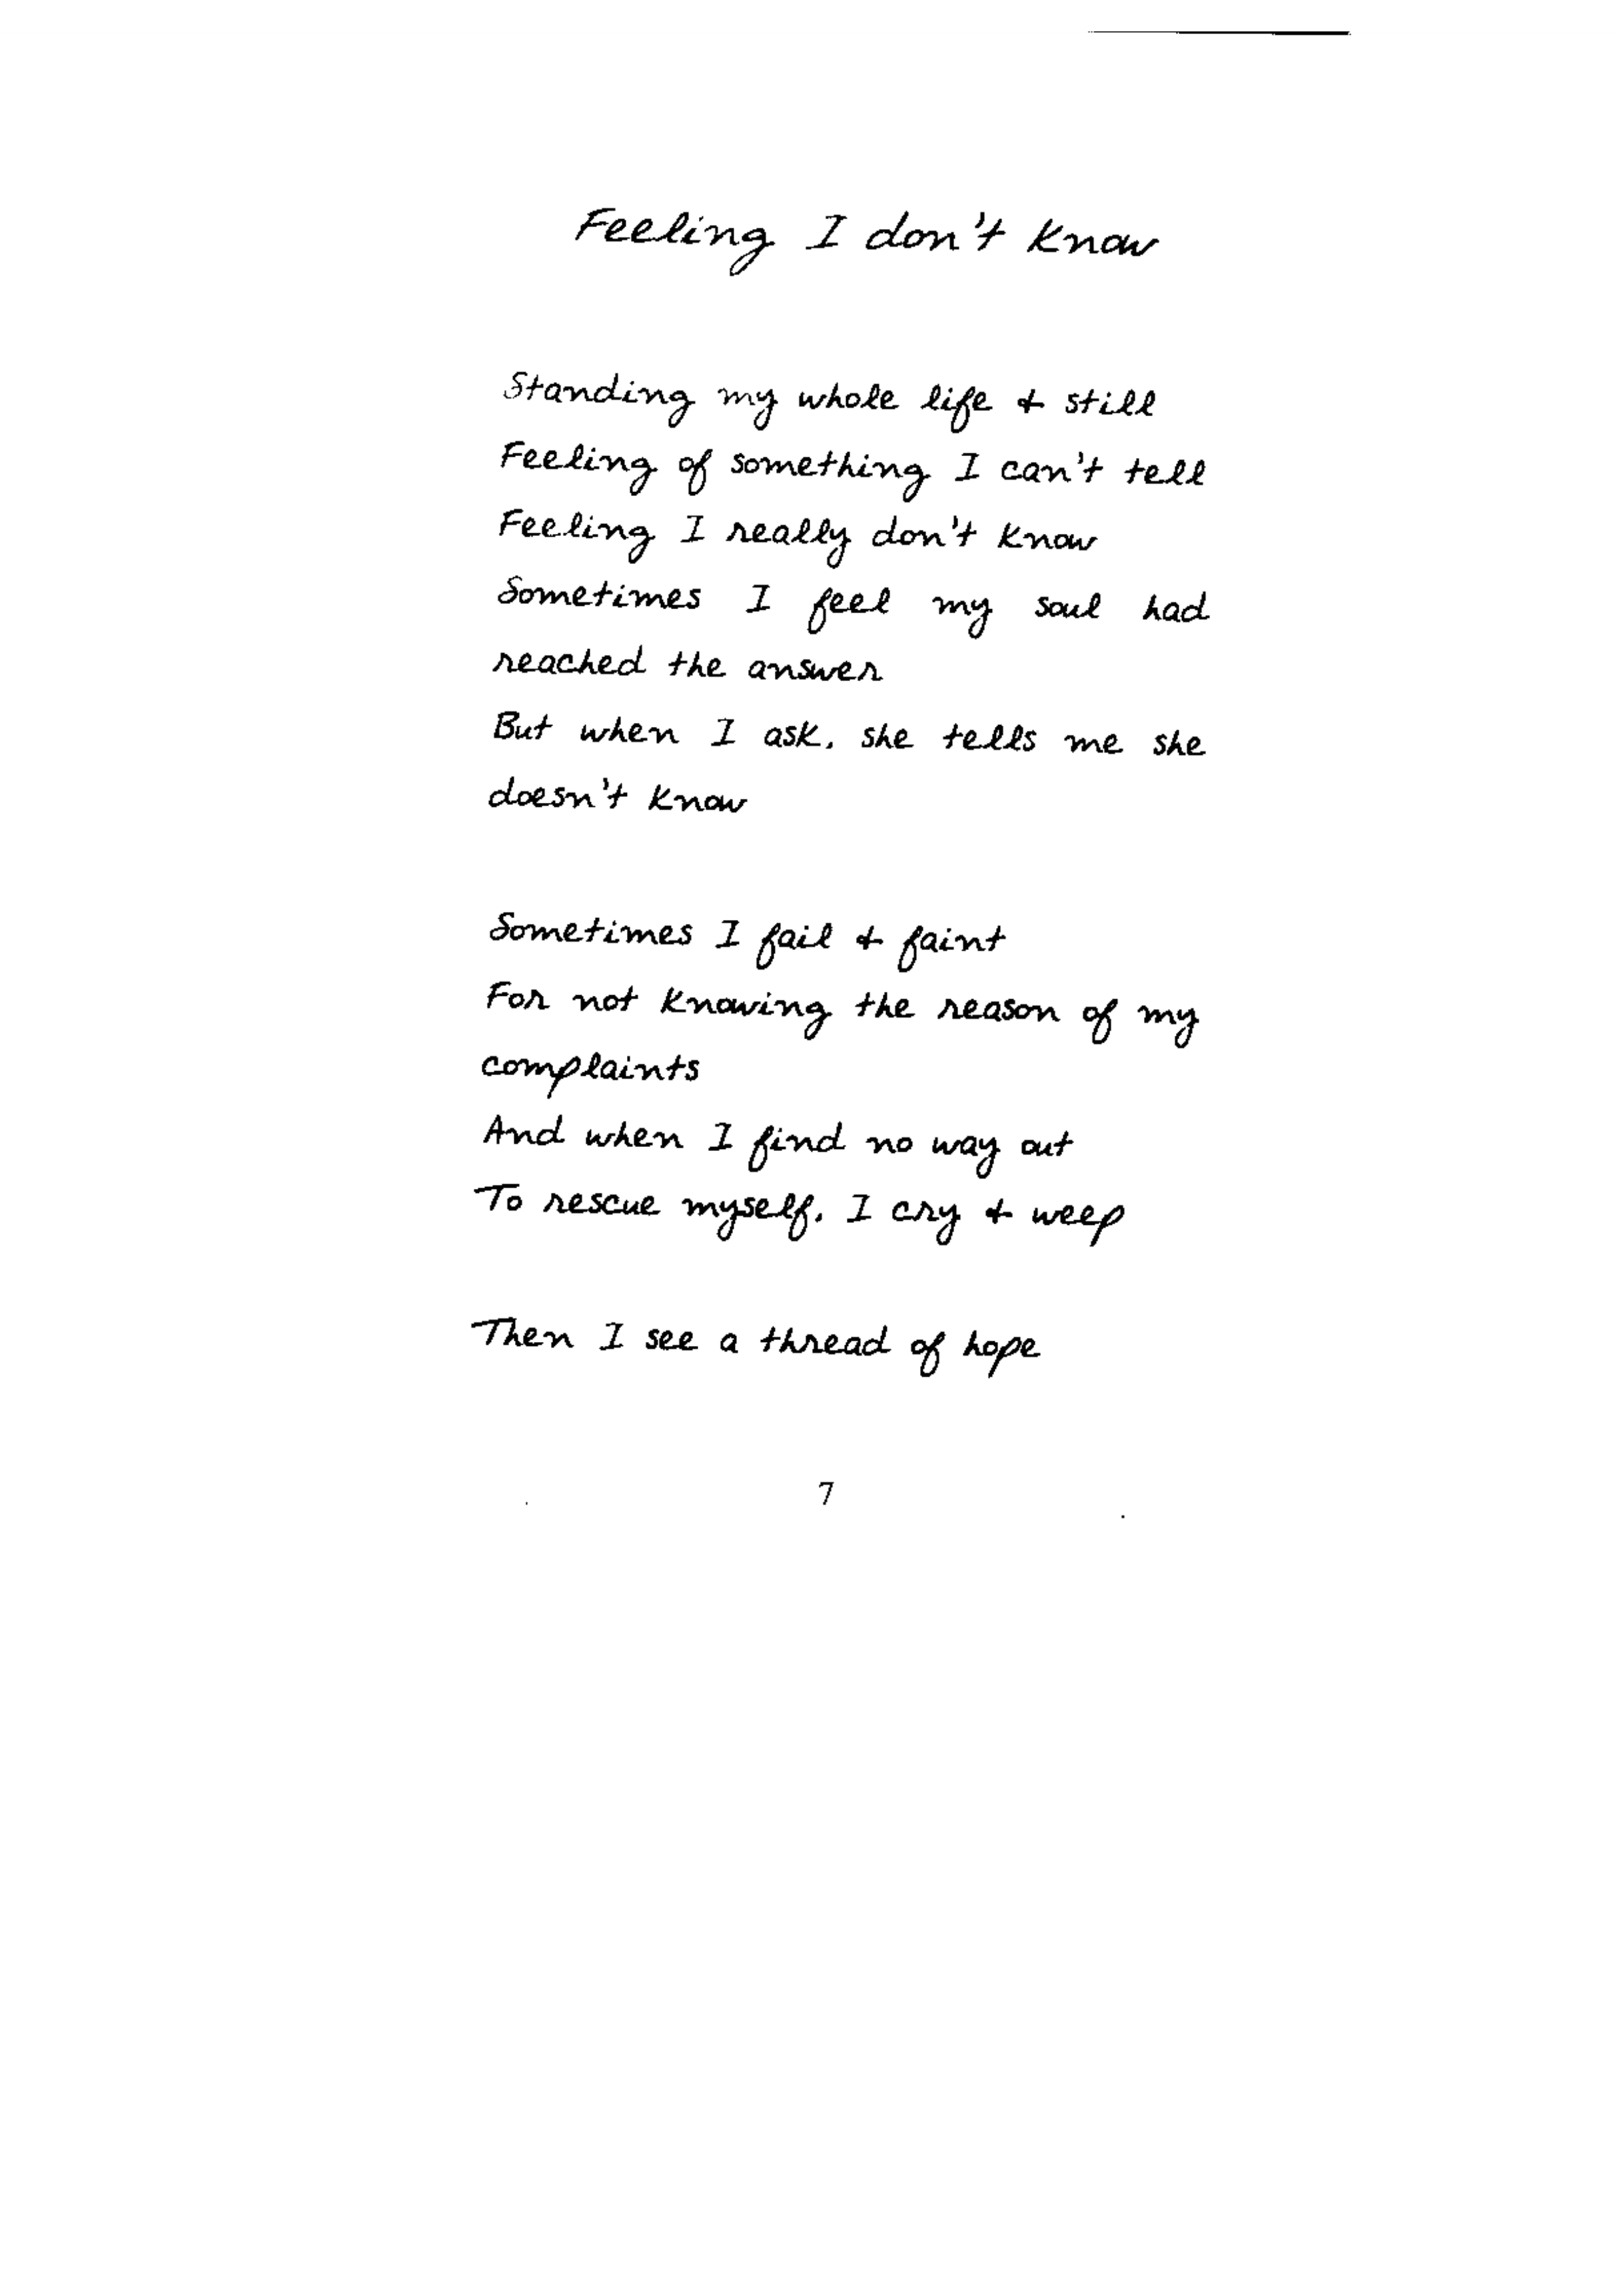 Feeling I don't know
Standing my whole life & still
Feeling of something I can't tell
Feeling I really don't know
Sometimes I feel my soul had
reached the answer
But when I ask, she tells me she
doesn't know
Sometimes I fail & faint
For not knowing the reason of my
complaints
And when I find no way out
To rescue myself, I cry & weep
Then I see a thread of hope
7